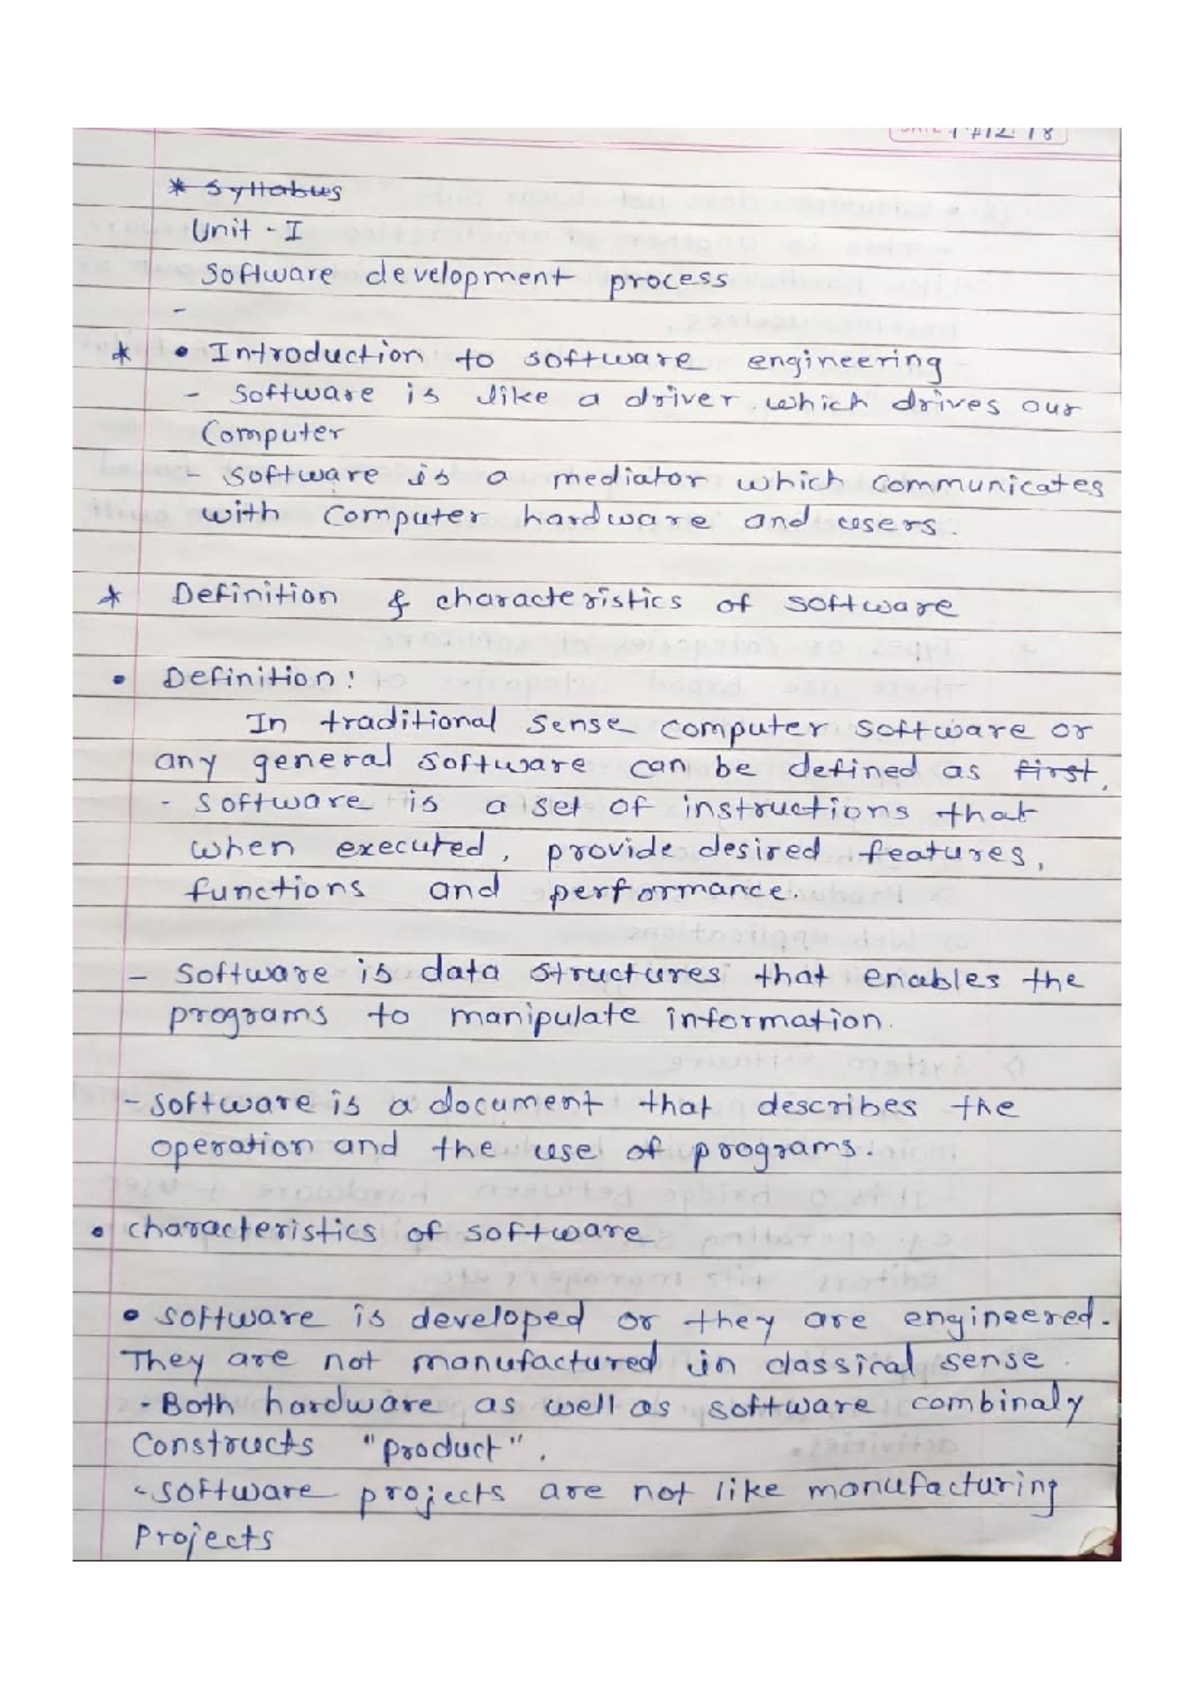 * Syllabus
Unit - I
Software development process
-
* • Introduction to software engineering
- Software is like a driver which drives our
Computer
- Software is a mediator which communicates
with computer hardware and users.
* Definition & characteristics of software
• Definition:
In traditional sense computer software or
any general software can be defined as first,
- Software is a set of instructions that
when executed, provide desired features,
functions and performance.
- Software is data structures that enables the
programs to manipulate information.
- Software is a document that describes the
operation and the use of programs.
• characteristics of software
• Software is developed or they are engineered.
They are not manufactured in classical sense.
- Both hardware as well as software combinaly
Constructs "product".
- Software projects are not like manufacturing
Projects